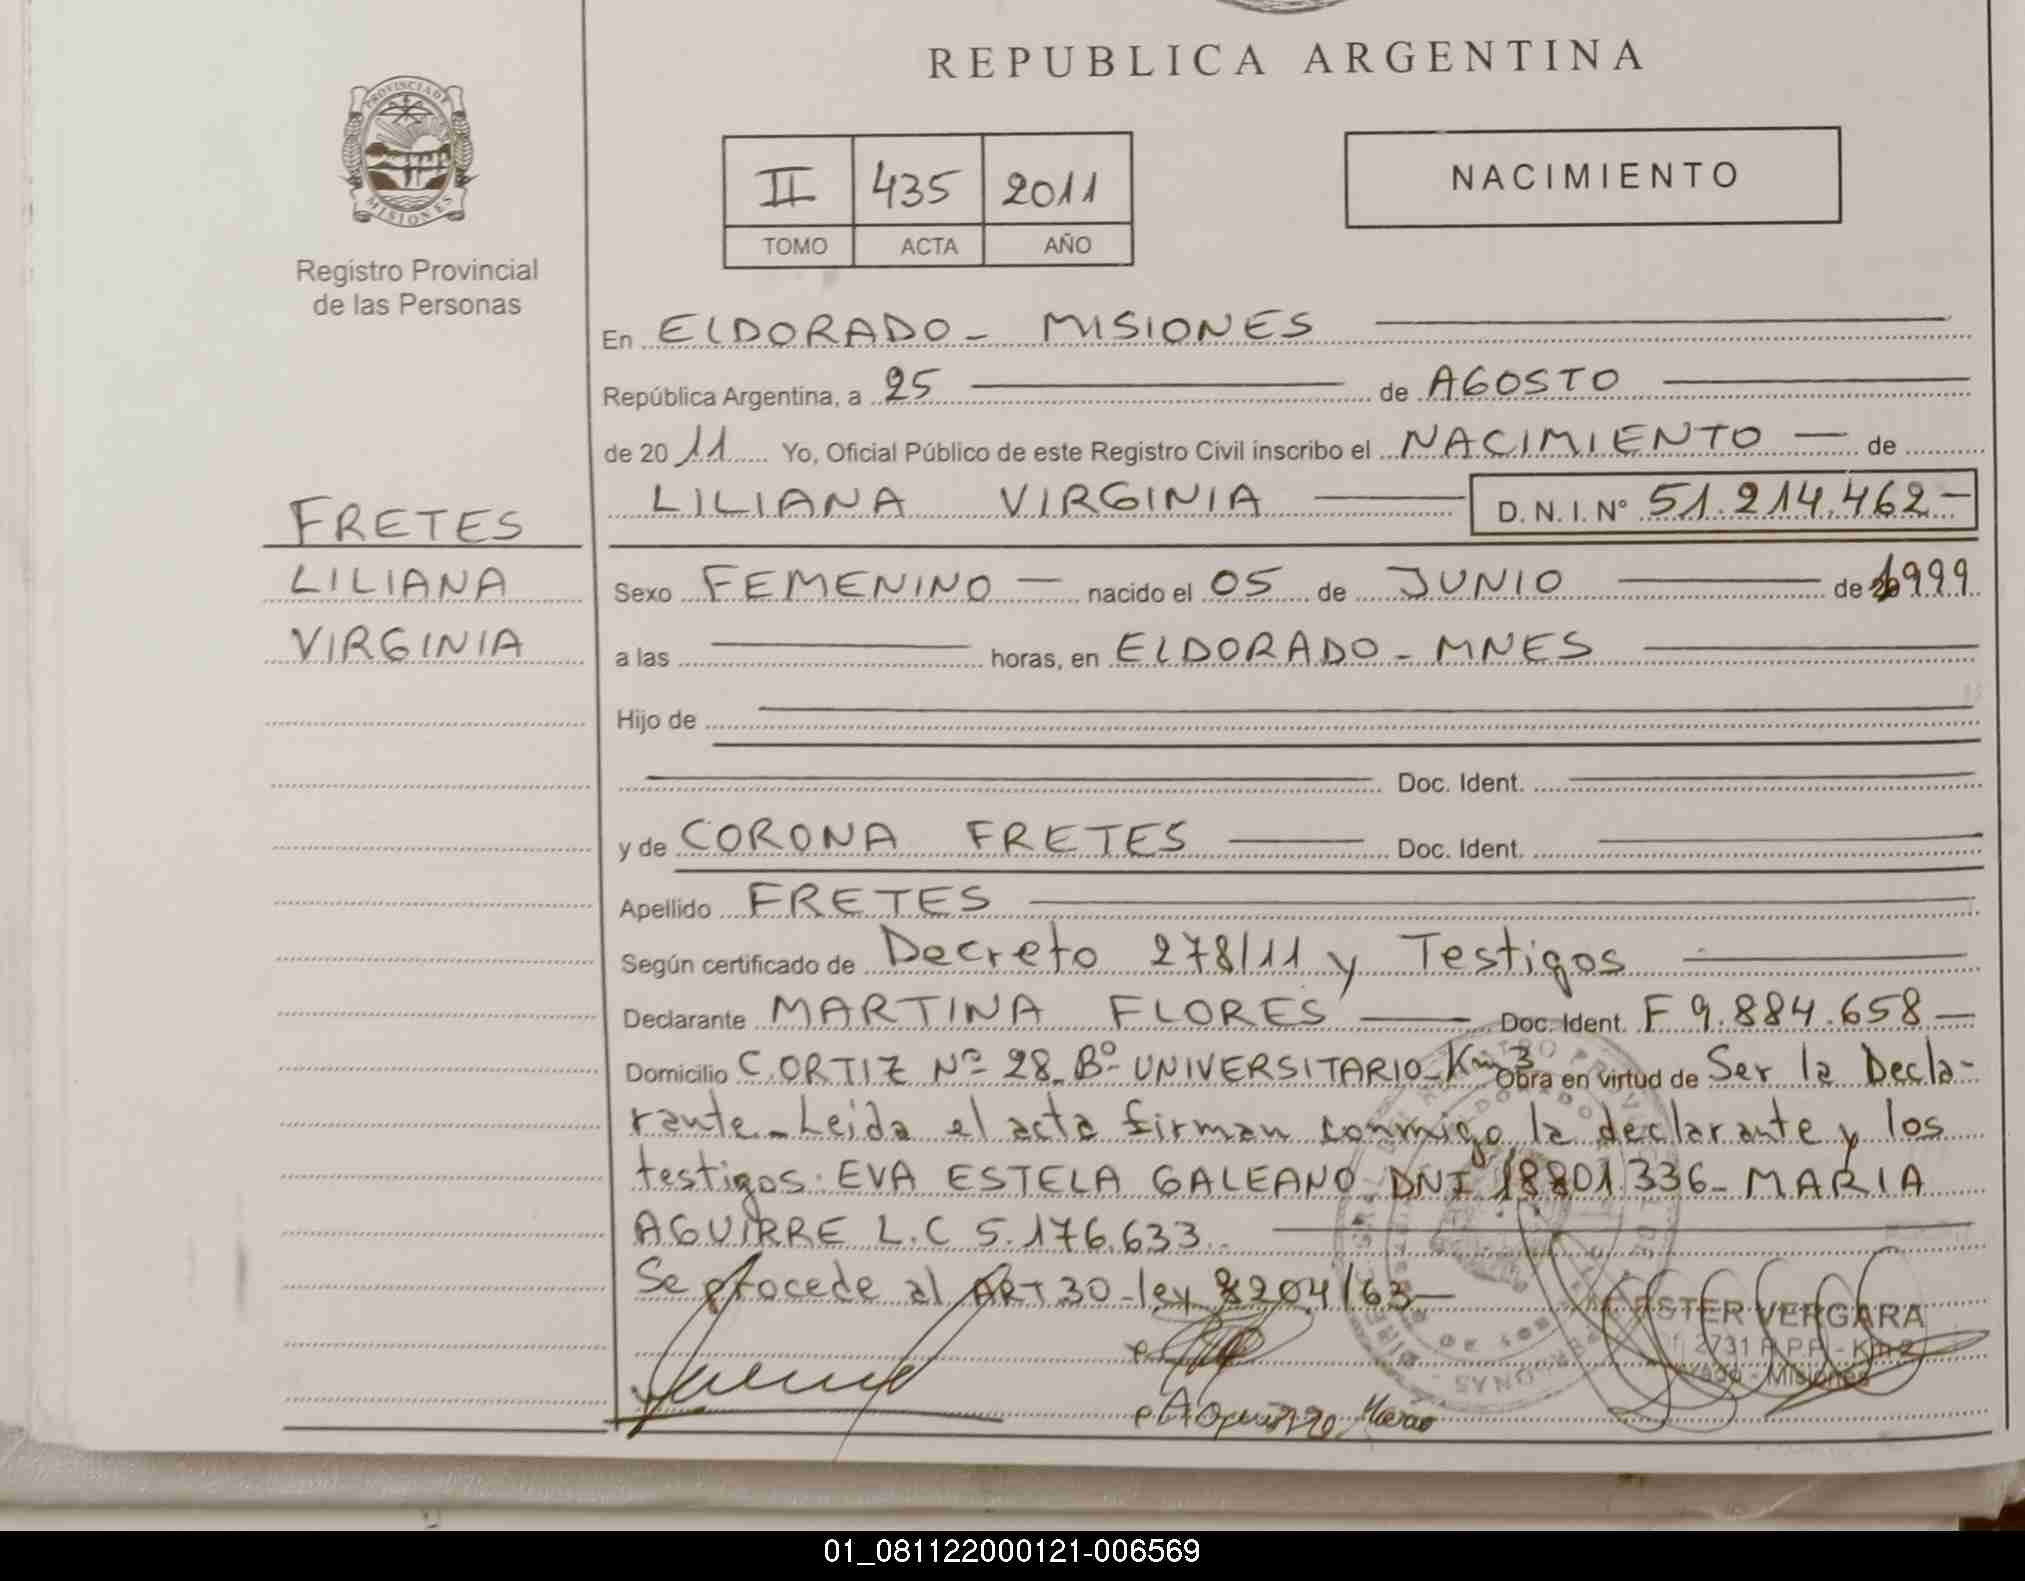 REPUBLICA ARGENTINA
PROVINCIA DE
MISIONES
Registro Provincial
de las Personas
II 435 2011
TOMO ACTA AÑO
NACIMIENTO
En ELDORADO - MISIONES
República Argentina, a 25 de AGOSTO
de 2011 Yo, Oficial Público de este Registro Civil inscribo el NACIMIENTO de
LILIANA VIRGINIA D. N. I. Nº 51.214.462-
FRETES
LILIANA
VIRGINIA
Sexo FEMENINO nacido el 05 de JUNIO de 1999
a las horas, en ELDORADO - MNES
Hijo de
Doc. Ident.
y de CORONA FRETES Doc. Ident.
Apellido FRETES
Según certificado de Decreto 278/11 y Testigos
Declarante MARTINA FLORES Doc. Ident. F 9.884.658-
Domicilio C. ORTIZ Nº 28 - Bº UNIVERSITARIO - Km 3 Obra en virtud de Ser la Decla-
rante - Leida el acta firman conmigo la declarante y los
testigos: EVA ESTELA GALEANO DNI 18801.336 - MARIA
AGUIRRE L.C 5.176.633.
Se procede al ART 30 - ley 8204/63-
ESTER VERGARA
2731 R.P.P. - Km 2
Misiones
01_081122000121-006569